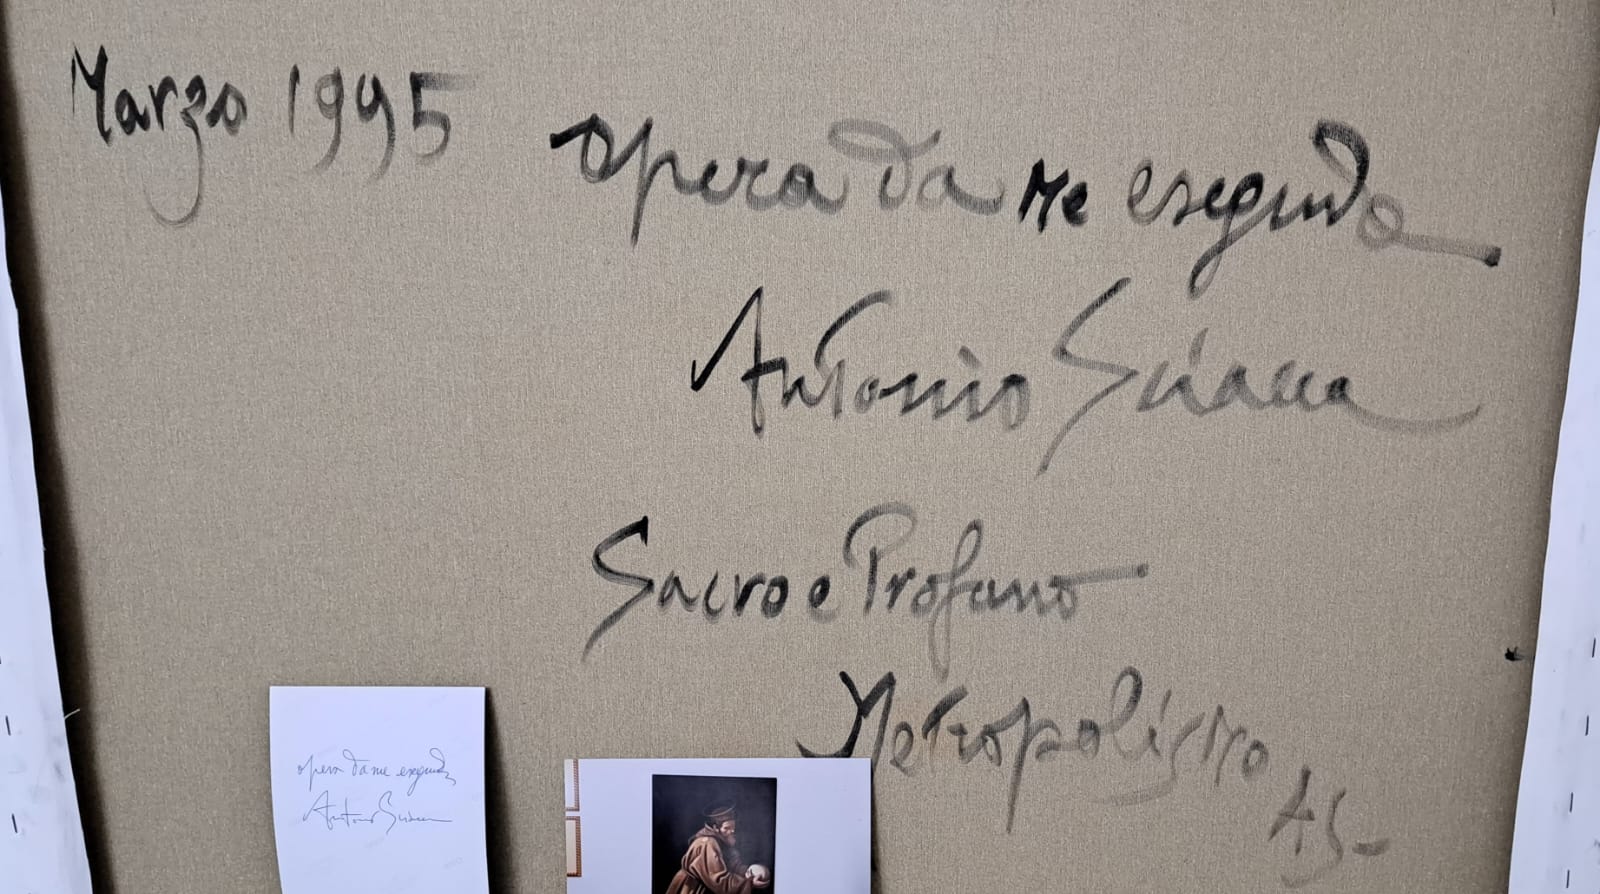 Marzo 1995
opera da me eseguita
Antonio Sciacca
Sacro e Profano
Metropolismo
AS-
opera da me eseguita
Antonio Sciacca